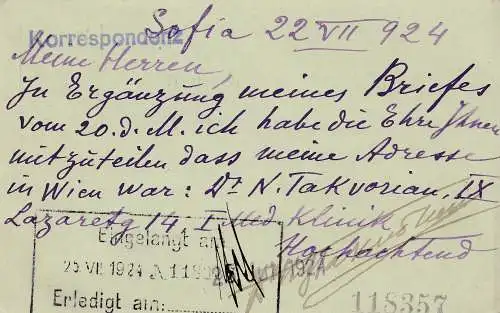 Sofia 22 VII 924
Korrespondenz
Meine Herren,
In Ergänzung meines Briefes
vom 20. d. M. ich habe die Ehre Ihnen
mitzuteilen dass meine Adresse
in Wien war: Dr N. Takvorian, IX
Lazaretg 14 I med. Klinik
Hochachtend
Eingelangt am
25 VII 1924
1924
Erledigt am:
118357